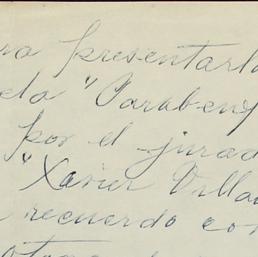 ra presentarla
ela "Parabeny
por el jurad
"Xavier Villau
recuerdo con